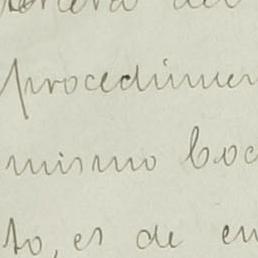 del
procedimien
mismo Boc
to, es de en